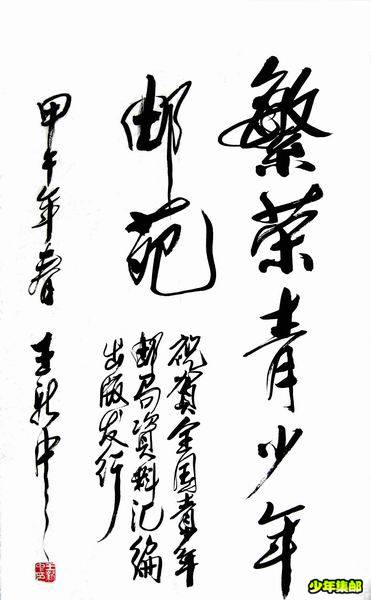 繁荣青少年
邮苑
祝賀全国青少年
邮局資料汇编
出版发行
甲午年春 王新中
少年集邮